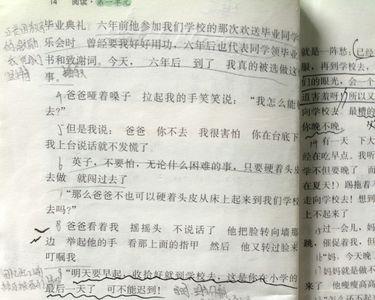 14 阅读·第一单元
毕业典礼 六年前他参加我们学校的那次欢送毕业同学
乐会时 曾经要我好好用功,六年后也代表同学领毕业
书和致谢词。今天, 六年后 到了 我真的被选做这
事,
爸爸哑着嗓子 拉起我的手笑笑说:“我怎么能
去?”
但是我说: 爸爸 你不去 我很害怕 你在台底下
我上台说话就不发慌了
英子,不要怕,无论什么困难的事,只要硬着头皮
去做 就闯过去了
“那么爸爸不也可以硬着头皮从床上起来到我们学校
去吗?”
爸爸看着我 摇摇头 不说话了 他把脸转向墙那
边 举起他的手 看那上面的指甲 然后 他又转过脸来
叮嘱我
“明天要早起,收拾好就到学校去,这是你在小学的
最后一天了 可不能迟到!
就是一阵愁:已经
服,再到学校去,
们的眼光,会一个
道害羞呀!所以又
向学校去 最糟的
你晚不晚。
有一天 下大
经在吃早点。我听
学不但要晚了 而
在夏天!)踢拖着
走向学校去!想到
上不起来了
过一会儿,妈
跳,催促着我,但
“妈,今天晚
妈妈就是做不
来了 他瘦瘦高高